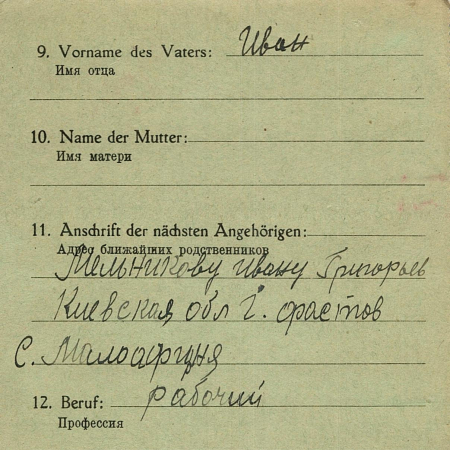 9. Vorname des Vaters: Иван
Имя отца
10. Name der Mutter:
Имя матери
11. Anschrift der nächsten Angehörigen:
Адрес ближайших родственников
Мельникову Ивану Григорьев
Киевская обл г. фастов
С. Малоафиня
12. Beruf: рабочий
Профессия